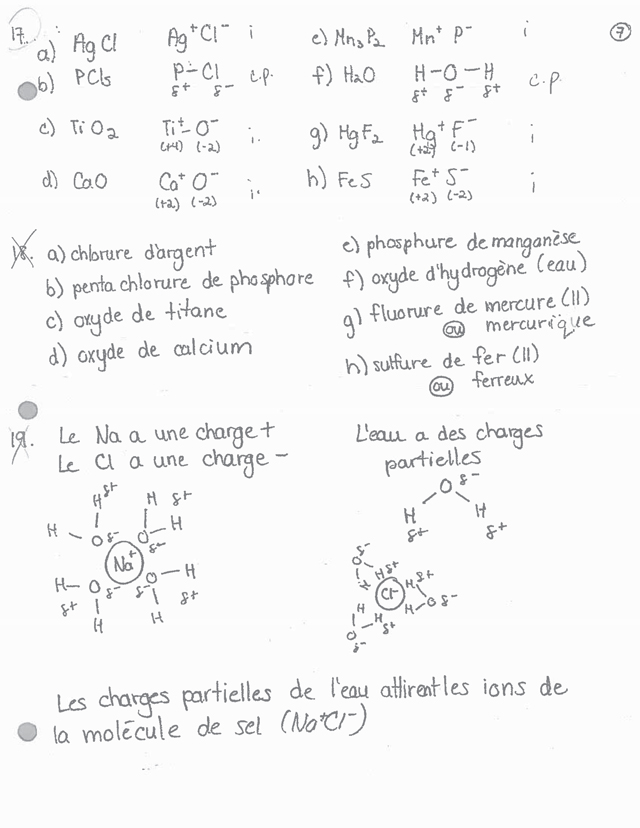 17. a) AgCl Ag⁺Cl⁻ i e) Mn₃P₂ Mn⁺ P⁻ i ⑦
b) PCl₅ P–Cl c.p. f) H₂O H–O–H c.p.
δ+ δ- δ+ δ- δ+
c) TiO₂ Ti⁺–O⁻ i. g) HgF₂ Hg⁺ F⁻ i
(+4) (-2) (+2) (-1)
d) CaO Ca⁺ O⁻ i. h) FeS Fe⁺ S⁻ i
(+2) (-2) (+2) (-2)
18. a) chlorure d'argent
b) penta chlorure de phosphore
c) oxyde de titane
d) oxyde de calcium
e) phosphure de manganèse
f) oxyde d'hydrogène (eau)
g) fluorure de mercure (II)
ou mercurique
h) sulfure de fer (II)
ou ferreux
19. Le Na a une charge +
Le Cl a une charge -
L'eau a des charges
partielles
O δ-
H H
δ+ δ+
H δ+ H δ+
H O δ- O H
δ-
Na⁺
H O δ- δ- O H
δ+ δ+
H H
δ-
O H δ+ H δ+
H Cl⁻ O δ-
H H H
O δ+
δ-
Les charges partielles de l'eau attirent les ions de
la molécule de sel (Na⁺Cl⁻)